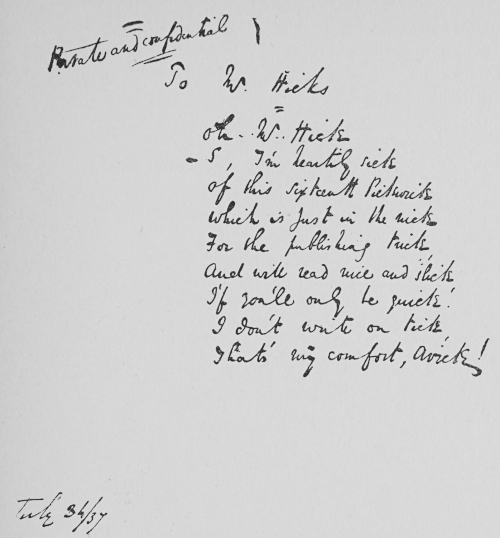 Private and confidential
To Mr. Hicks
Oh. Mr. Hick
-S, I'm heartily sick
of this sixteenth Pickwick
which is just in the nick
For the publishing trick,
And will read nice and slick
If you'll only be quick!
I don't write on tick,
That's my comfort, Avick!
July /37